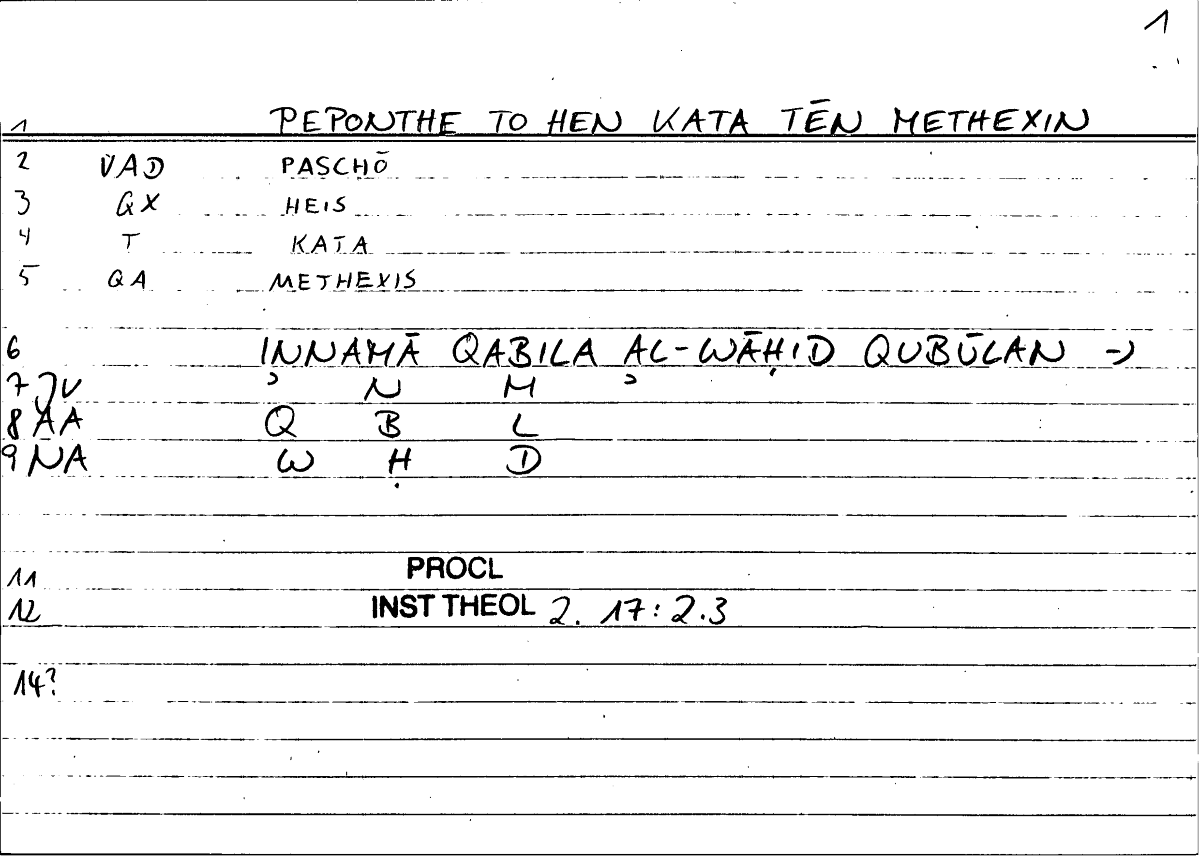 1
1 PEPONTHE TO HEN KATA TĒN METHEXIN
2 VAD PASCHŌ
3 GX HEIS
4 T KATA
5 QA METHEXIS
6 INNAMĀ QABILA AL-WĀḤID QUBŪLAN →
7 JV ʾ N M ʾ
8 AA Q B L
9 NA W Ḥ D
11 PROCL
12 INST THEOL 2. 17:2.3
14?